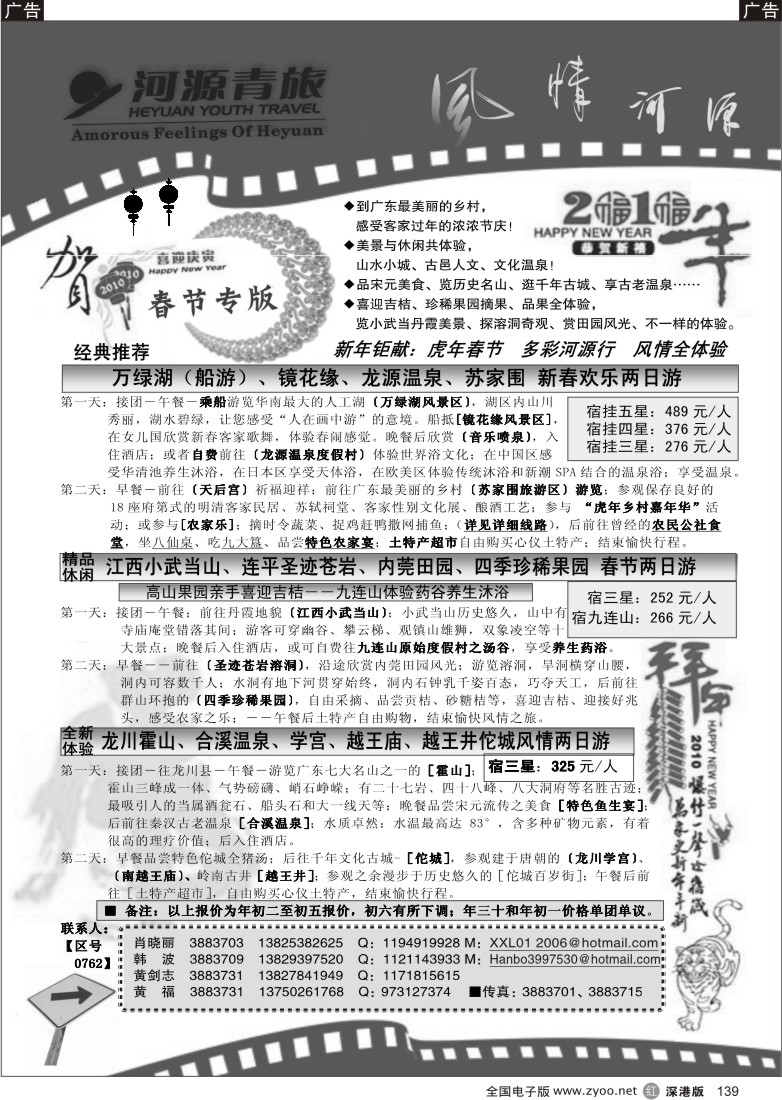 广告
广告
河源青旅
HEYUAN YOUTH TRAVEL
Amorous Feelings Of Heyuan
風情河源
◆到广东最美丽的乡村，
感受客家过年的浓浓节庆！
◆美景与休闲共体验，
山水小城、古邑人文、文化温泉！
◆品宋元美食、览历史名山、逛千年古城、享古老温泉……
◆喜迎吉桔、珍稀果园摘果、品果全体验，
览小武当丹霞美景、探溶洞奇观、赏田园风光、不一样的体验。
2010
HAPPY NEW YEAR
恭贺新禧
贺
2010
2010
喜迎庚寅
Happy New Year
春节专版
经典推荐
新年钜献：虎年春节 多彩河源行 风情全体验
万绿湖（船游）、镜花缘、龙源温泉、苏家围 新春欢乐两日游
第一天：接团－午餐－乘船游览华南最大的人工湖〔万绿湖风景区〕，湖区内山川
秀丽，湖水碧绿，让您感受“人在画中游”的意境。船抵[镜花缘风景区]，
在女儿国欣赏新春客家歌舞，体验春闹感觉。晚餐后欣赏〔音乐喷泉〕，入
住酒店；或者自费前往〔龙源温泉度假村〕体验世界浴文化；在中国区感
受华清池养生沐浴，在日本区享受天体浴，在欧美区体验传统沐浴和新潮 SPA 结合的温泉浴；享受温泉。
宿挂五星：489 元/人
宿挂四星：376 元/人
宿挂三星：276 元/人
第二天：早餐－前往〔天后宫〕祈福迎祥；前往广东最美丽的乡村〔苏家围旅游区〕游览；参观保存良好的
18 座府第式的明清客家民居、苏轼祠堂、客家性别文化展、酿酒工艺；参与 “虎年乡村嘉年华”活
动；或参与[农家乐]；摘时令蔬菜、捉鸡赶鸭撒网捕鱼；（详见详细线路），后前往曾经的农民公社食
堂，坐八仙桌、吃九大簋、品尝特色农家宴；土特产超市自由购买心仪土特产；结束愉快行程。
精品休闲
江西小武当山、连平圣迹苍岩、内莞田园、四季珍稀果园 春节两日游
高山果园亲手喜迎吉桔－－九连山体验药谷养生沐浴
宿三星：252 元/人
宿九连山：266 元/人
第一天：接团－午餐；前往丹霞地貌〔江西小武当山〕；小武当山历史悠久，山中有
寺庙庵堂错落其间；游客可穿幽谷、攀云梯、观镇山雄狮，双象凌空等十
大景点；晚餐后入住酒店，或可自费往九连山原始度假村之汤谷，享受养生药浴。
第二天：早餐－－前往〔圣迹苍岩溶洞〕，沿途欣赏内莞田园风光；游览溶洞，旱洞横穿山腰，
洞内可容数千人；水洞有地下河贯穿始终，洞内石钟乳千姿百态，巧夺天工，后前往
群山环抱的〔四季珍稀果园〕，自由采摘、品尝贡桔、砂糖桔等，喜迎吉桔、迎接好兆
头，感受农家之乐；－－午餐后土特产自由购物，结束愉快风情之旅。
全新体验
龙川霍山、合溪温泉、学宫、越王庙、越王井佗城风情两日游
第一天：接团－往龙川县－午餐－游览广东七大名山之一的［霍山］；
宿三星：325 元/人
霍山三峰成一体、气势磅礴、峭石峥嵘；有二十七岩、四十八峰、八大洞府等名胜古迹；
最吸引人的当属酒瓮石、船头石和大一线天等；晚餐品尝宋元流传之美食［特色鱼生宴］；
后前往秦汉古老温泉［合溪温泉］；水质卓然；水温最高达 83°，含多种矿物元素，有着
很高的理疗价值；后入住酒店。
第二天：早餐品尝特色佗城全猪汤；后往千年文化古城-［佗城］，参观建于唐朝的〔龙川学宫〕、
〔南越王庙〕、岭南古井［越王井］；参观之余漫步于历史悠久的［佗城百岁街］；午餐后前
往［土特产超市］，自由购买心仪土特产，结束愉快行程。
■ 备注：以上报价为年初二至初五报价，初六有所下调；年三十和年初一价格单团单议。
拜年
HAPPY NEW YEAR
2010
爆竹一声除旧岁
万象更新年年新
联系人：
【区号
0762】
肖晓丽 3883703 13825382625 Q：1194919928 M：XXL01 2006@hotmail.com
韩 波 3883709 13829397520 Q：1121143933 M：Hanbo3997530@hotmail.com
黄剑志 3883731 13827841949 Q：1171815615
黄 福 3883731 13750261768 Q：973127374 ■传真：3883701、3883715
全国电子版 www.zyoo.net 红 深港版 139